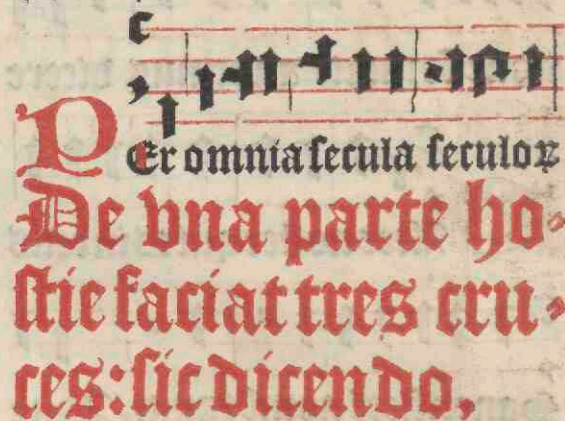 PEr omnia secula seculoꝝ
De vna parte ho-
stie faciat tres cru-
ces: sic dicendo,